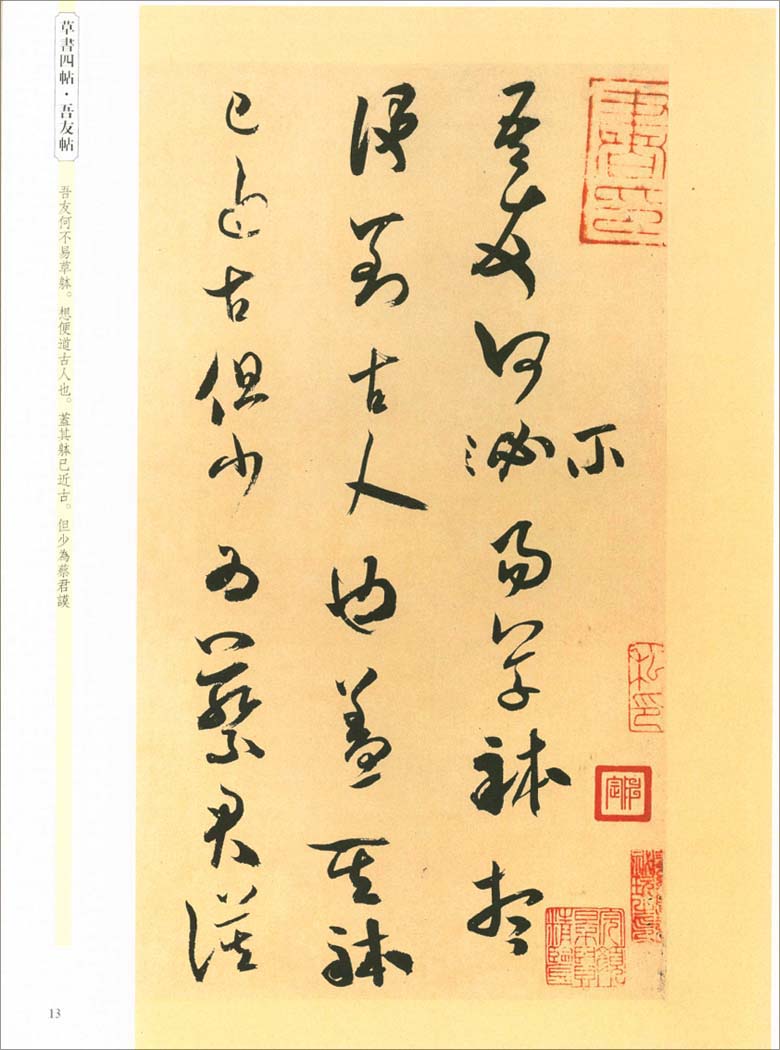 吾友何不易草躰想
便到古人也蓋其躰
已近古但少為蔡君謨
草書四帖·吾友帖
吾友何不易草躰。想便道古人也。蓋其躰已近古。但少為蔡君謨
13